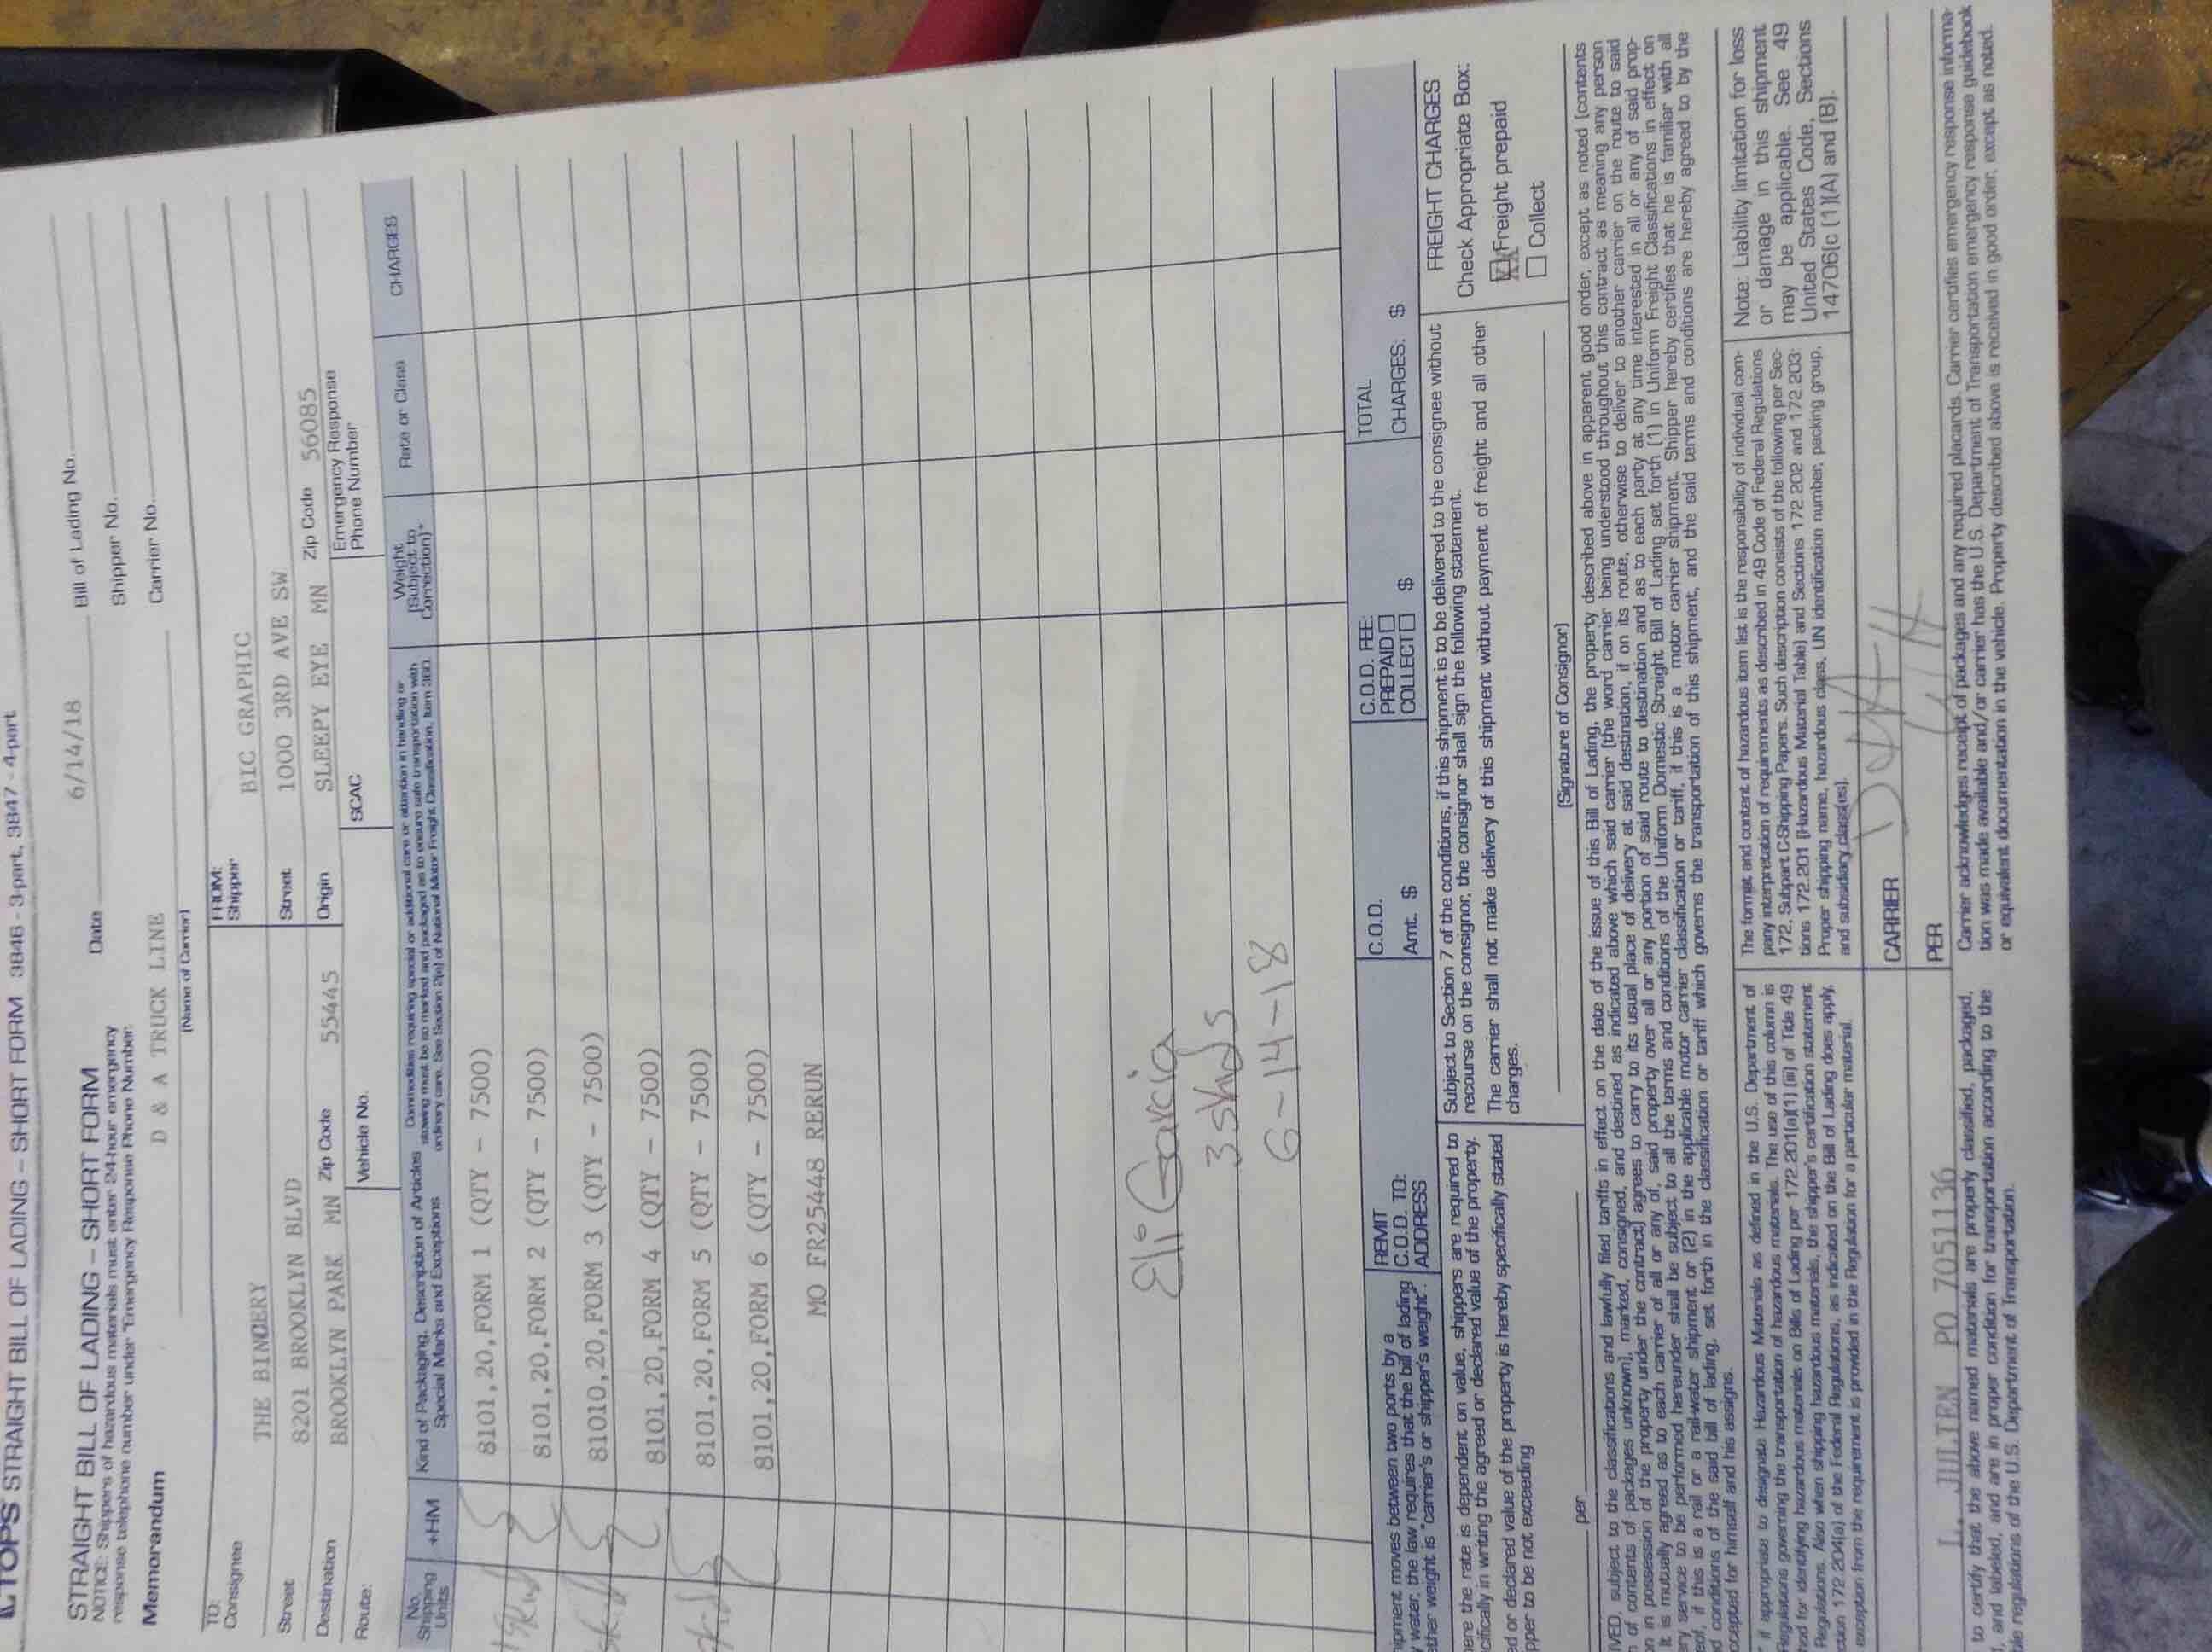 TOPS STRAIGHT BILL OF LADING – SHORT FORM 3846 - 3-part, 3847 - 4-part
STRAIGHT BILL OF LADING – SHORT FORM
NOTICE: Shippers of hazardous materials must enter 24-hour emergency
response telephone number under "Emergency Response Phone Number."
Memorandum
Date 6/14/18
Bill of Lading No.
Shipper No.
Carrier No.
D & A TRUCK LINE
(Name of Carrier)
TO:
Consignee THE BINDERY
Street 8201 BROOKLYN BLVD
Destination BROOKLYN PARK MN Zip Code 55445
Route: Vehicle No.
FROM:
Shipper BIC GRAPHIC
Street 1000 3RD AVE SW
Origin SLEEPY EYE MN Zip Code 56085
SCAC
Emergency Response
Phone Number
No. Shipping Units
+HM
Kind of Packaging, Description of Articles
Special Marks and Exceptions
Commodities requiring special or additional care or attention in handling or
stowing must be so marked and packaged as to ensure safe transportation with
ordinary care. See Section 2(e) of National Motor Freight Classification, Item 360.
Weight
(Subject to
Correction)*
Rate or Class
CHARGES
8101,20,FORM 1 (QTY - 7500)
8101,20,FORM 2 (QTY - 7500)
81010,20,FORM 3 (QTY - 7500)
8101,20,FORM 4 (QTY - 7500)
8101,20,FORM 5 (QTY - 7500)
8101,20,FORM 6 (QTY - 7500)
MO FR25448 RERUN
Eli Garcia
3 skids
6-14-18
shipment moves between two ports by a
water, the law requires that the bill of lading
whether weight is "carrier's or shipper's weight".
REMIT
C.O.D. TO:
ADDRESS
C.O.D.
Amt. $
C.O.D. FEE:
PREPAID
COLLECT $
TOTAL
CHARGES: $
where the rate is dependent on value, shippers are required to
specifically in writing the agreed or declared value of the property.
or declared value of the property is hereby specifically stated
shipper to be not exceeding
per
Subject to Section 7 of the conditions, if this shipment is to be delivered to the consignee without
recourse on the consignor, the consignor shall sign the following statement.
The carrier shall not make delivery of this shipment without payment of freight and all other
charges.
(Signature of Consignor)
FREIGHT CHARGES
Check Appropriate Box:
XX Freight prepaid
Collect
subject to the classifications and lawfully filed tariffs in effect on the date of the issue of this Bill of Lading, the property described above in apparent good order, except as noted (contents
of contents of packages unknown), marked, consigned, and destined as indicated above which said carrier (the word carrier being understood throughout this contract as meaning any person
in possession of the property under the contract) agrees to carry to its usual place of delivery at said destination, if on its route, otherwise to deliver to another carrier on the route to said
It is mutually agreed as to each carrier of all or any of, said property over all or any portion of said route to destination and as to each party at any time interested in all or any of said prop-
service to be performed hereunder shall be subject to all the terms and conditions of the Uniform Domestic Straight Bill of Lading set forth (1) in Uniform Freight Classifications in effect on
if this is a rail or a rail-water shipment or (2) in the applicable motor carrier classification or tariff, if this is a motor carrier shipment. Shipper hereby certifies that he is familiar with all
conditions of the said bill of lading, set forth in the classification or tariff which governs the transportation of this shipment, and the said terms and conditions are hereby agreed to by the
accepted for himself and his assigns.
if appropriate to designate Hazardous Materials as defined in the U.S. Department of
Regulations governing the transportation of hazardous materials. The use of this column is
method for identifying hazardous materials on Bills of Lading per 172.201(a)(1) (iii) of Title 49
Regulations. Also when shipping hazardous materials, the shipper's certification statement
section 172.204(a) of the Federal Regulations, as indicated on the Bill of Lading does apply,
exception from the requirement is provided in the Regulation for a particular material.
The format and content of hazardous item list is the responsibility of individual com-
pany interpretation of requirements as described in 49 Code of Federal Regulations
172, Subpart C-Shipping Papers. Such description consists of the following per Sec-
tions 172.201 (Hazardous Material Table) and Sections 172.202 and 172.203:
Proper shipping name, hazardous class, UN identification number, packing group,
and subsidiary class(es).
Note: Liability limitation for loss
or damage in this shipment
may be applicable. See 49
United States Code, Sections
14706(c (1)(A) and (B).
L. JULIEN PO 7051136
CARRIER
PER
to certify that the above named materials are properly classified, packaged,
and labeled, and are in proper condition for transportation according to the
regulations of the U.S. Department of Transportation.
Carrier acknowledges receipt of packages and any required placards. Carrier certifies emergency response informa-
tion was made available and/or carrier has the U.S. Department of Transportation emergency response guidebook
or equivalent documentation in the vehicle. Property described above is received in good order, except as noted.